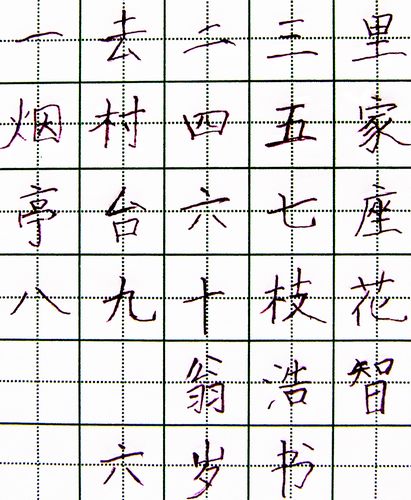 一去二三里
烟村四五家
亭台六七座
八九十枝花
翁浩智
六岁书